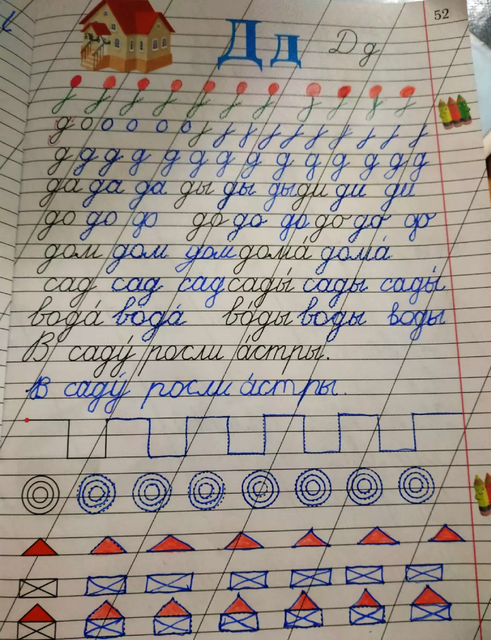 52
Д д Д д
д о о о о
д д д д д д д д д д д д д
да да да ды ды ды ди ди ди
до до до до до до до до до
дом дом дом дома́ дома́
сад сад сад сады́ сады́ сады́
вода́ вода́ во́ды воды воды
В саду́ росли а́стры.
В саду́ росли а́стры.